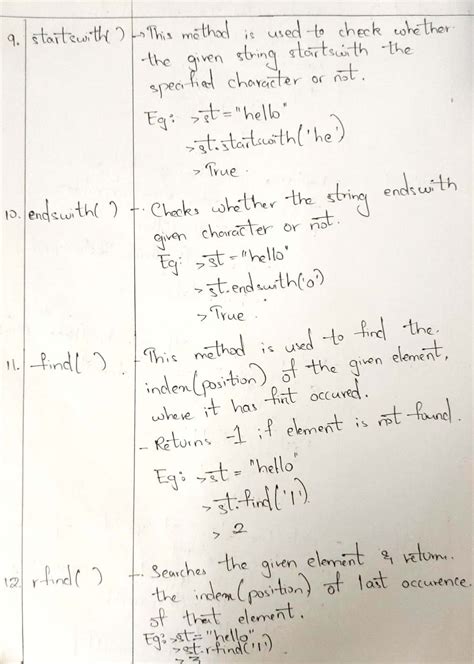 9. startswith( ) → This method is used to check whether
the given string startswith the
specified character or not.
Eg: >st = "hello"
>st.startswith('he')
>True.
10. endswith( ) - Checks whether the string endswith
given character or not.
Eg: >st = "hello"
>st.endswith('o')
>True.
11. find( ) - This method is used to find the
index(position) of the given element,
where it has first occured.
- Returns -1 if element is not found.
Eg: >st = "hello"
>st.find('l')
> 2
12. rfind( ) - Searches the given element & return
the index(position) of last occurence
of that element.
Eg: >st = "hello"
>st.rfind('l')
> 3